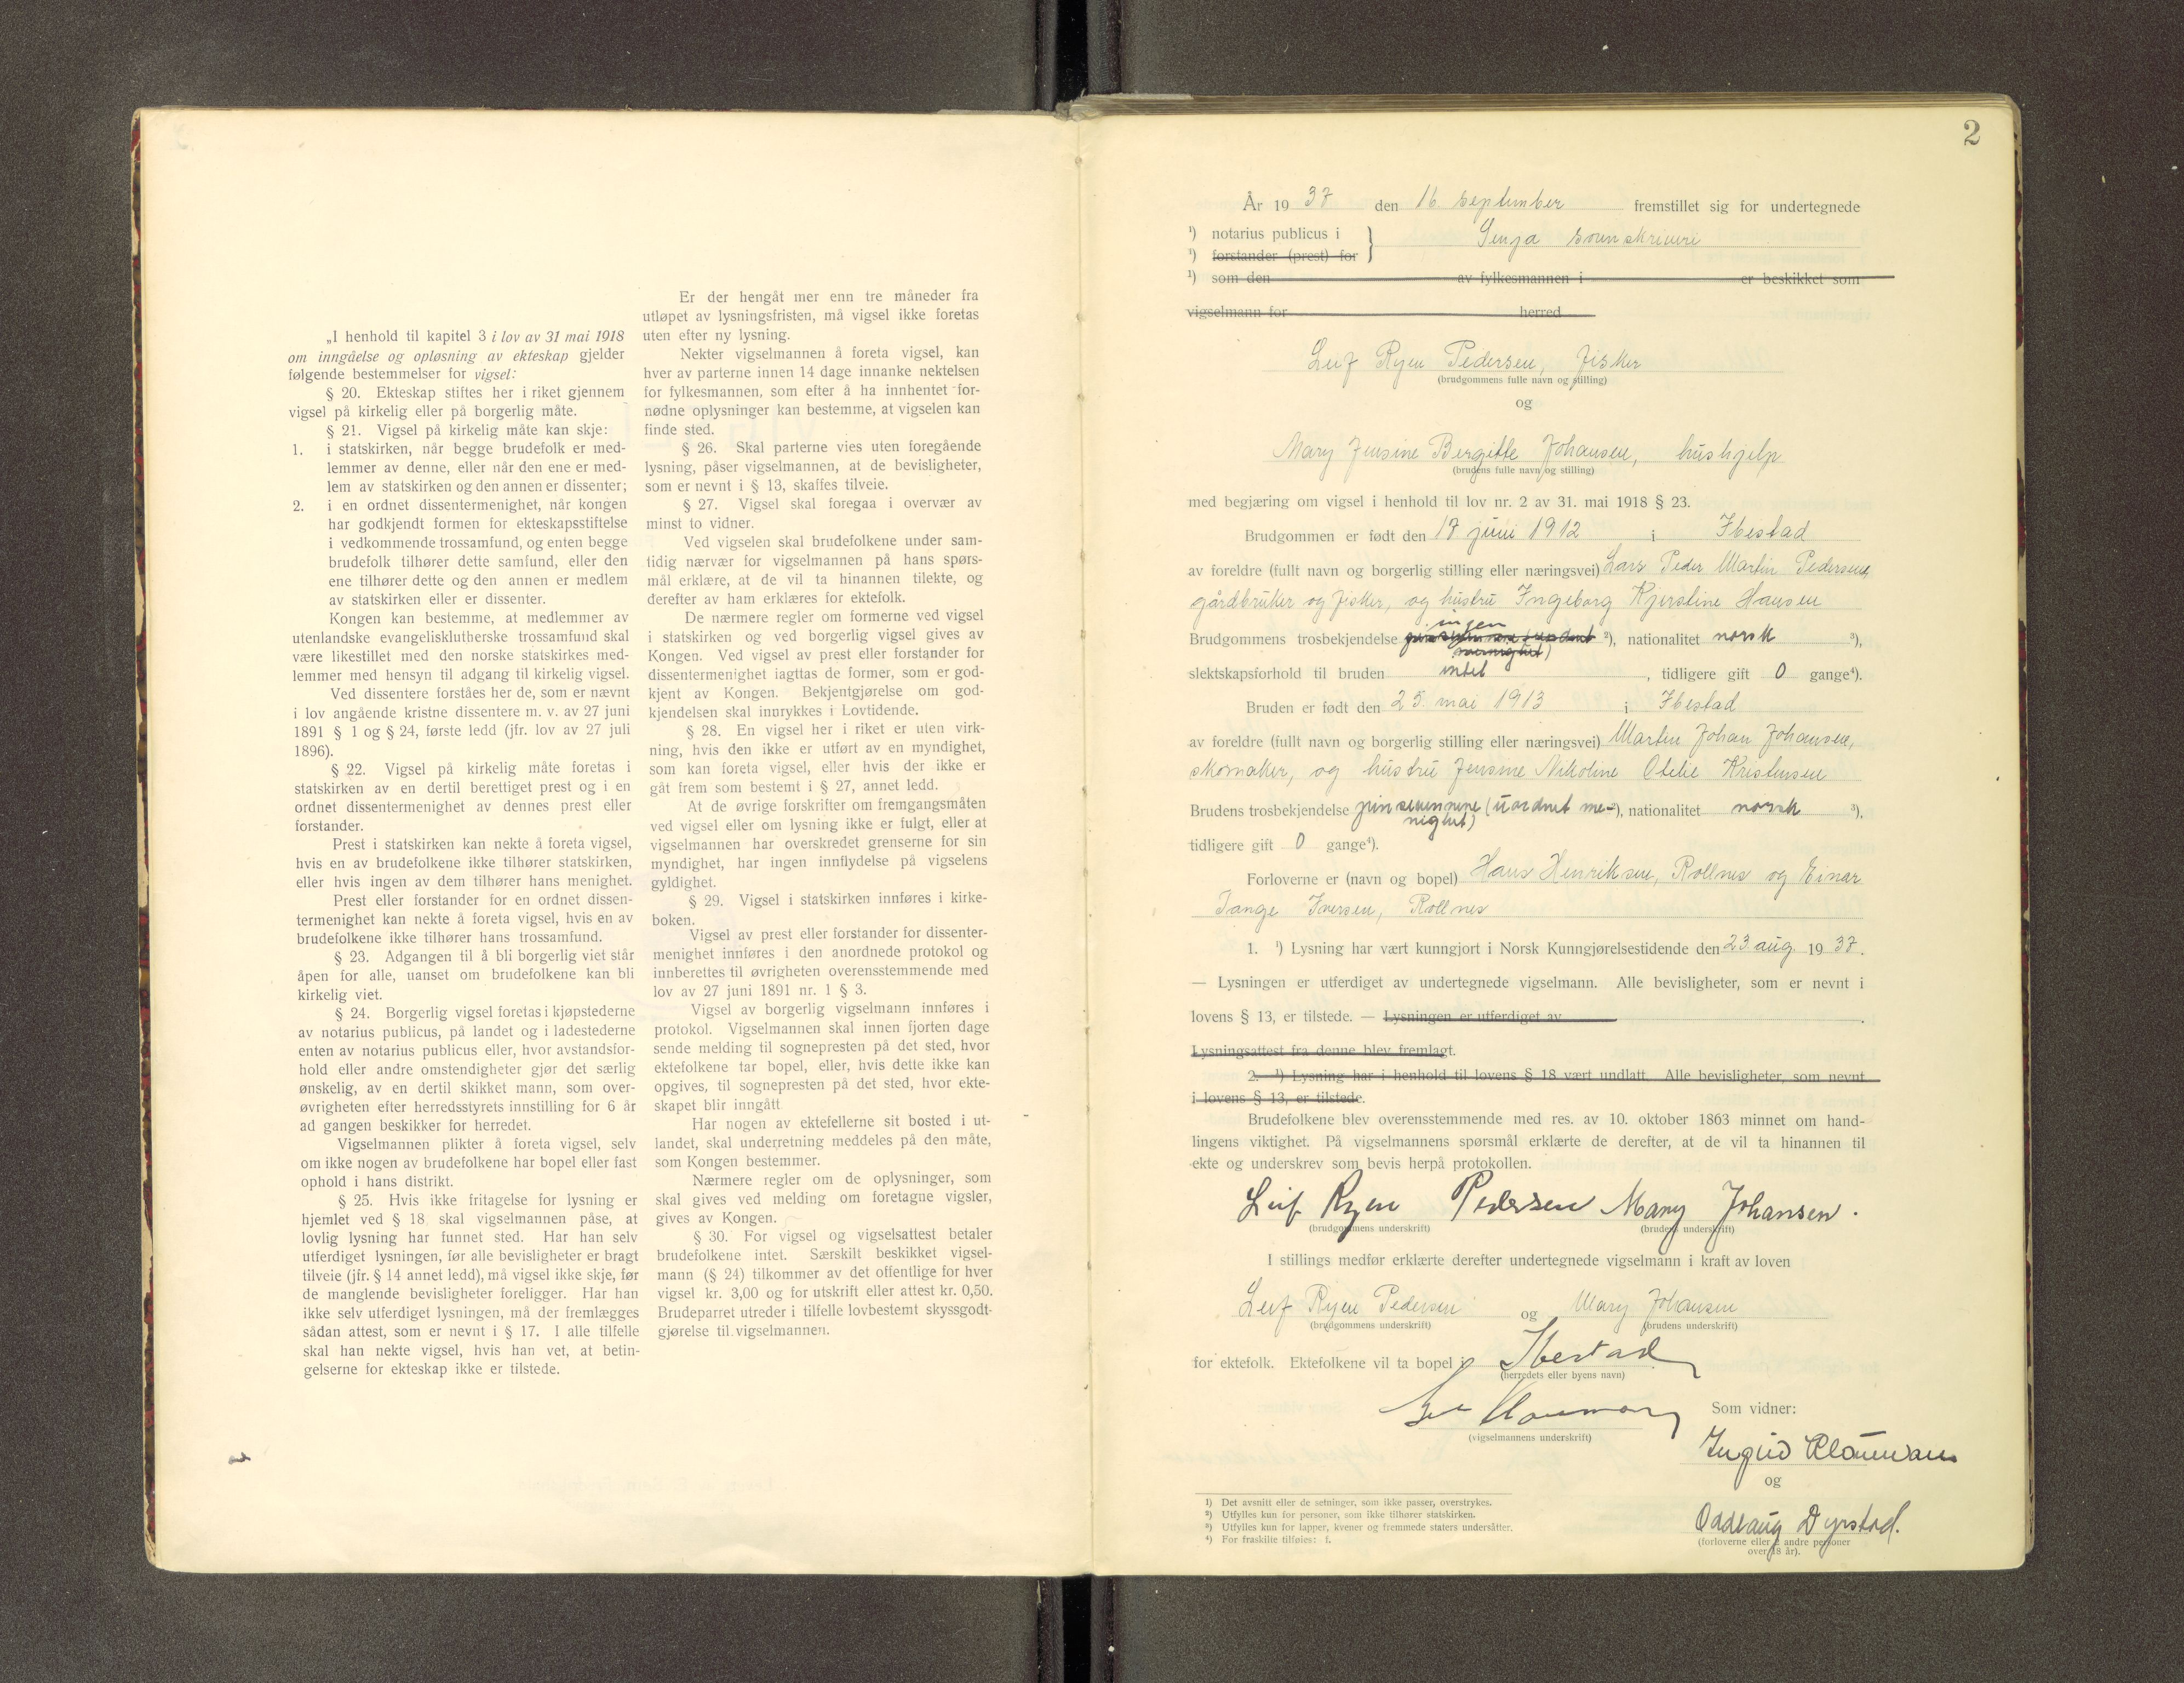 „I henhold til kapitel 3 i lov av 31 mai 1918
om inngåelse og opløsning av ekteskap gjelder
følgende bestemmelser for vigsel:
§ 20. Ekteskap stiftes her i riket gjennem
vigsel på kirkelig eller på borgerlig måte.
§ 21. Vigsel på kirkelig måte kan skje:
1. i statskirken, når begge brudefolk er med-
lemmer av denne, eller når den ene er med-
lem av statskirken og den annen er dissenter;
2. i en ordnet dissentermenighet, når kongen
har godkjendt formen for ekteskapsstiftelse
i vedkommende trossamfund, og enten begge
brudefolk tilhører dette samfund, eller den
ene tilhører dette og den annen er medlem
av statskirken eller er dissenter.
Kongen kan bestemme, at medlemmer av
utenlandske evangelisklutherske trossamfund skal
være likestillet med den norske statskirkes med-
lemmer med hensyn til adgang til kirkelig vigsel.
Ved dissentere forståes her de, som er nævnt
i lov angående kristne dissentere m. v. av 27 juni
1891 § 1 og § 24, første ledd (jfr. lov av 27 juli
1896).
§ 22. Vigsel på kirkelig måte foretas i
statskirken av en dertil berettiget prest og i en
ordnet dissentermenighet av dennes prest eller
forstander.
Prest i statskirken kan nekte å foreta vigsel,
hvis en av brudefolkene ikke tilhører statskirken,
eller hvis ingen av dem tilhører hans menighet.
Prest eller forstander for en ordnet dissen-
termenighet kan nekte å foreta vigsel, hvis en av
brudefolkene ikke tilhører hans trossamfund.
§ 23. Adgangen til å bli borgerlig viet står
åpen for alle, uanset om brudefolkene kan bli
kirkelig viet.
§ 24. Borgerlig vigsel foretas i kjøpstederne
av notarius publicus, på landet og i ladestederne
enten av notarius publicus eller, hvor avstandsfor-
hold eller andre omstendigheter gjør det særlig
ønskelig, av en dertil skikket mann, som over-
øvrigheten efter herredsstyrets innstilling for 6 år
ad gangen beskikker for herredet.
Vigselmannen plikter å foreta vigsel, selv
om ikke nogen av brudefolkene har bopel eller fast
ophold i hans distrikt.
§ 25. Hvis ikke fritagelse for lysning er
hjemlet ved § 18 skal vigselmannen påse, at
lovlig lysning har funnet sted. Har han selv
utferdiget lysningen, før alle bevisligheter er bragt
tilveie (jfr. § 14 annet ledd), må vigsel ikke skje, før
de manglende bevisligheter foreligger. Har han
ikke selv utferdiget lysningen, må der fremlægges
sådan attest, som er nevnt i § 17. I alle tilfelle
skal han nekte vigsel, hvis han vet, at betin-
gelserne for ekteskap ikke er tilstede.
Er der hengåt mer enn tre måneder fra
utløpet av lysningsfristen, må vigsel ikke foretas
uten efter ny lysning.
Nekter vigselmannen å foreta vigsel, kan
hver av parterne innen 14 dage innanke nektelsen
for fylkesmannen, som efter å ha innhentet for-
nødne oplysninger kan bestemme, at vigselen kan
finde sted.
§ 26. Skal parterne vies uten foregående
lysning, påser vigselmannen, at de bevisligheter,
som er nevnt i § 13, skaffes tilveie.
§ 27. Vigsel skal foregaa i overvær av
minst to vidner.
Ved vigselen skal brudefolkene under sam-
tidig nærvær for vigselmannen på hans spørs-
mål erklære, at de vil ta hinannen tilekte, og
derefter av ham erklæres for ektefolk.
De nærmere regler om formerne ved vigsel
i statskirken og ved borgerlig vigsel gives av
Kongen. Ved vigsel av prest eller forstander for
dissentermenighet iagttas de former, som er god-
kjent av Kongen. Bekjentgjørelse om god-
kjendelsen skal innrykkes i Lovtidende.
§ 28. En vigsel her i riket er uten virk-
ning, hvis den ikke er utført av en myndighet,
som kan foreta vigsel, eller hvis der ikke er
gåt frem som bestemt i § 27, annet ledd.
At de øvrige forskrifter om fremgangsmåten
ved vigsel eller om lysning ikke er fulgt, eller at
vigselmannen har overskredet grenserne for sin
myndighet, har ingen innflydelse på vigselens
gyldighet.
§ 29. Vigsel i statskirken innføres i kirke-
boken.
Vigsel av prest eller forstander for dissenter-
menighet innføres i den anordnede protokol og
innberettes til øvrigheten overensstemmende med
lov av 27 juni 1891 nr. 1 § 3.
Vigsel av borgerlig vigselmann innføres i
protokol. Vigselmannen skal innen fjorten dage
sende melding til sognepresten på det sted, hvor
ektefolkene tar bopel, eller, hvis dette ikke kan
opgives, til sognepresten på det sted, hvor ekte-
skapet blir inngått
Har nogen av ektefellerne sit bosted i ut-
landet, skal underretning meddeles på den måte,
som Kongen bestemmer.
Nærmere regler om de oplysninger, som
skal gives ved melding om foretagne vigsler,
gives av Kongen.
§ 30. For vigsel og vigselsattest betaler
brudefolkene intet. Særskilt beskikket vigsel-
mann (§ 24) tilkommer av det offentlige for hver
vigsel kr. 3,00 og for utskrift eller attest kr. 0,50.
Brudeparret utreder i tilfelle lovbestemt skyssgodt-
gjørelse til vigselmannen.
2
År 1937 den 16. september fremstillet sig for undertegnede
¹) notarius publicus i } Senja sorenskriveri
¹) forstander (prest) for
¹) som den av fylkesmannen i er beskikket som
vigselmann for herred
Leif Ryen Pedersen, fisker
(brudgommens fulle navn og stilling)
og
Mary Jensine Bergitte Johansen, hushjelp
(brudens fulle navn og stilling)
med begjæring om vigsel i henhold til lov nr. 2 av 31. mai 1918 § 23.
Brudgommen er født den 17 juni 1912 i Ibestad
av foreldre (fullt navn og borgerlig stilling eller næringsvei) Lars Peder Martin Pedersen,
gårdbruker og fisker, og hustru Ingeborg Kjerstine Hansen
ingen
Brudgommens trosbekjendelse ²), nationalitet norsk ³),
slektskapsforhold til bruden intet, tidligere gift 0 gange⁴).
Bruden er født den 25. mai 1913 i Ibestad
av foreldre (fullt navn og borgerlig stilling eller næringsvei) Martin Johan Johansen,
skomaker, og hustru Jensine Nikoline Otelie Kristensen
Brudens trosbekjendelse pinsevennene (uordnet me- ²), nationalitet norsk ³),
nighet)
tidligere gift 0 gange⁴).
Forloverne er (navn og bopel) Hans Henriksen, Rollnes og Einar
Tange Iversen, Rollnes
1. ¹) Lysning har vært kunngjort i Norsk Kunngjørelsestidende den 23 aug. 1937.
— Lysningen er utferdiget av undertegnede vigselmann. Alle bevisligheter, som er nevnt i
lovens § 13, er tilstede. — Lysningen er utferdiget av .
Lysningsattest fra denne blev fremlagt.
2. ¹) Lysning har i henhold til lovens § 18 vært undlatt. Alle bevisligheter, som nevnt
i lovens § 13, er tilstede.
Brudefolkene blev overensstemmende med res. av 10. oktober 1863 minnet om hand-
lingens viktighet. På vigselmannens spørsmål erklærte de derefter, at de vil ta hinannen til
ekte og underskrev som bevis herpå protokollen.
Leif Ryen Pedersen Mary Johansen.
(brudgommens underskrift) (brudens underskrift)
I stillings medfør erklærte derefter undertegnede vigselmann i kraft av loven
Leif Ryen Pedersen og Mary Johansen
(brudgommens underskrift) (brudens underskrift)
for ektefolk. Ektefolkene vil ta bopel i Ibestad
(herredets eller byens navn)
Som vidner:
(vigselmannens underskrift)
Ingrid Klouman
og
Oddlaug Dyrstad.
(forloverne eller 2 andre personer
over 18 år).
¹) Det avsnitt eller de setninger, som ikke passer, overstrykes.
²) Utfylles kun for personer, som ikke tilhører statskirken.
³) Utfylles kun for lapper, kvener og fremmede staters undersåtter.
⁴) For fraskilte tilføies: f.